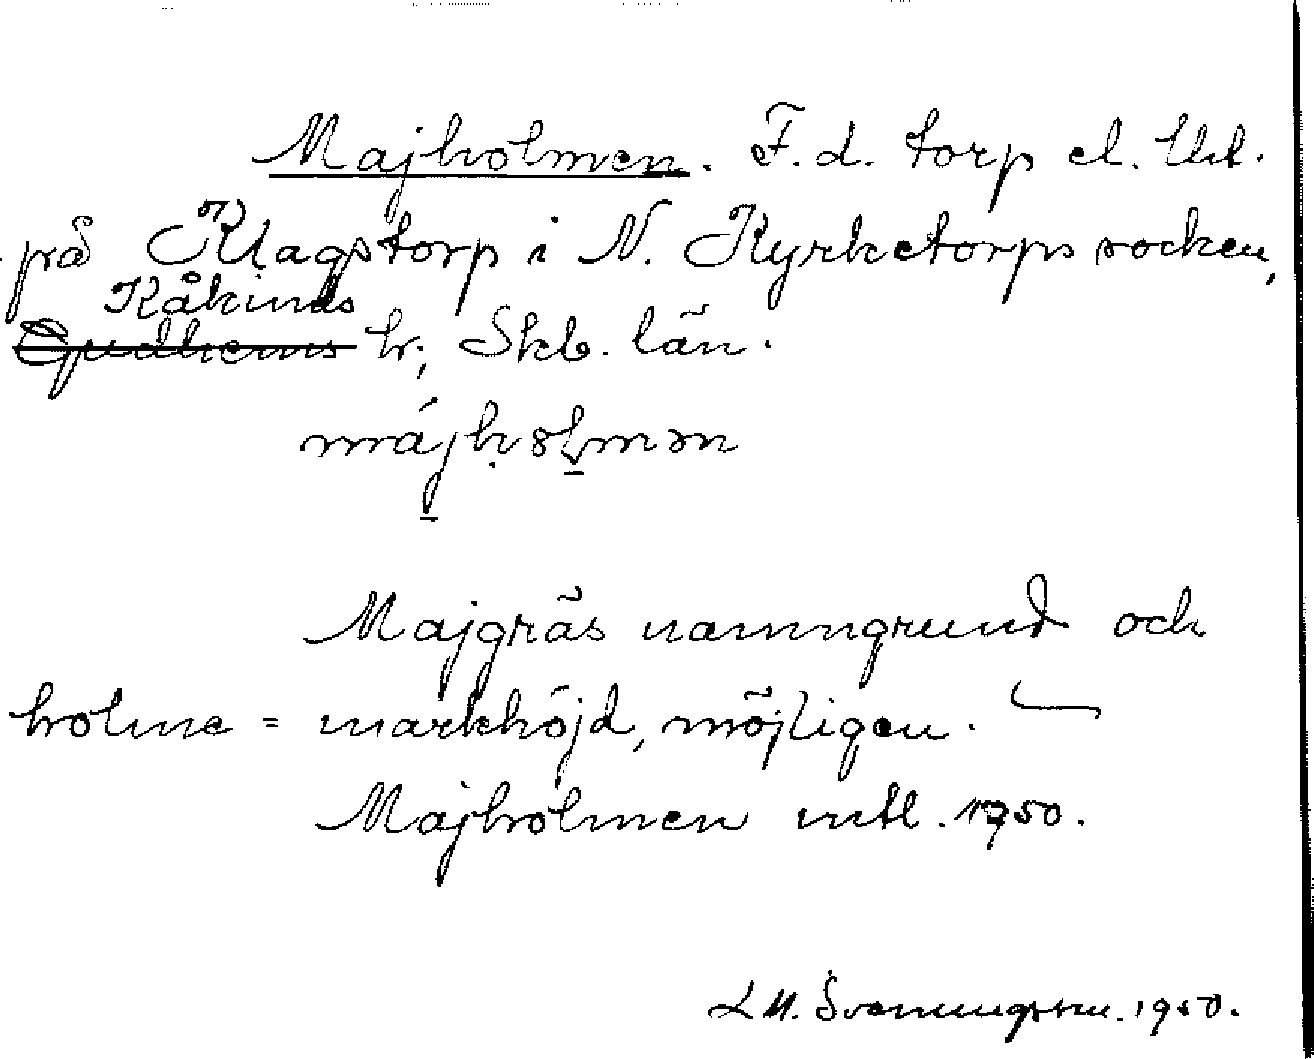 Majholmen. F. d. torp el. lht.
på Klagstorp i N. Kyrketorps socken,
Kåkinds
Gudhems hr; Skb. län.
májhölmən
Majgräs namngrund och
holme = markhöjd, möjligen.
Majholmen mtl. 1950.
L M. Svenungsson. 1950.